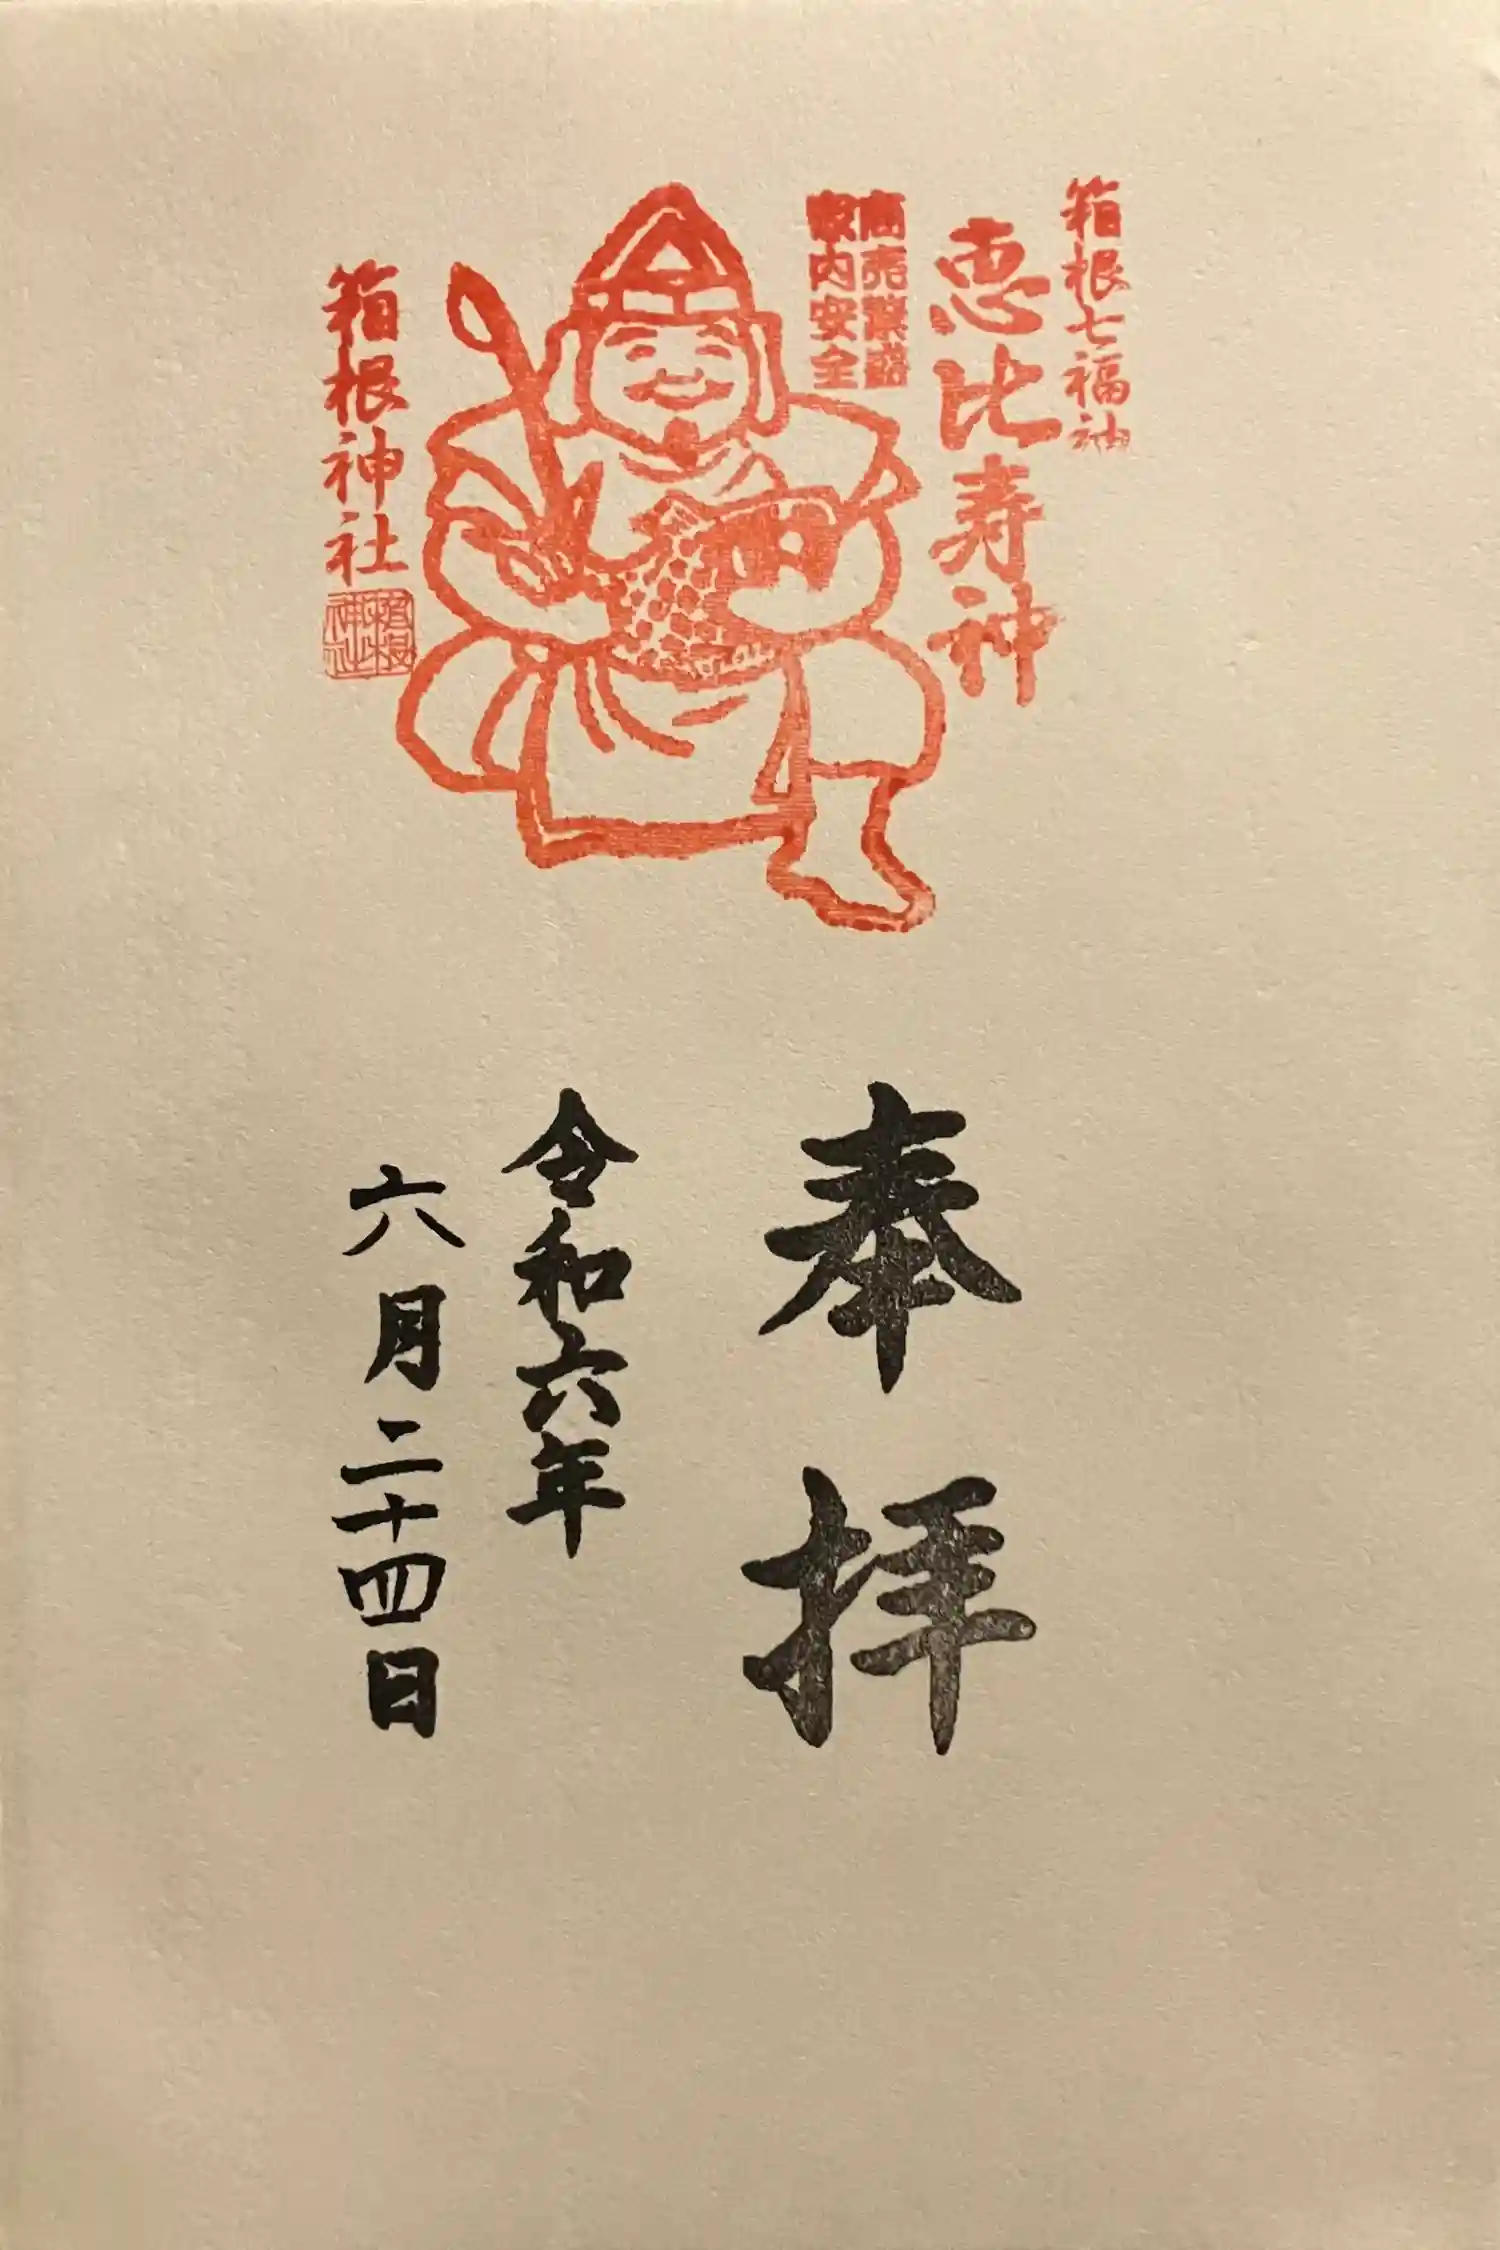 箱根七福神
恵比寿神
商売繁盛
家内安全
箱根神社
箱根神社
奉拝
令和六年
六月二十四日